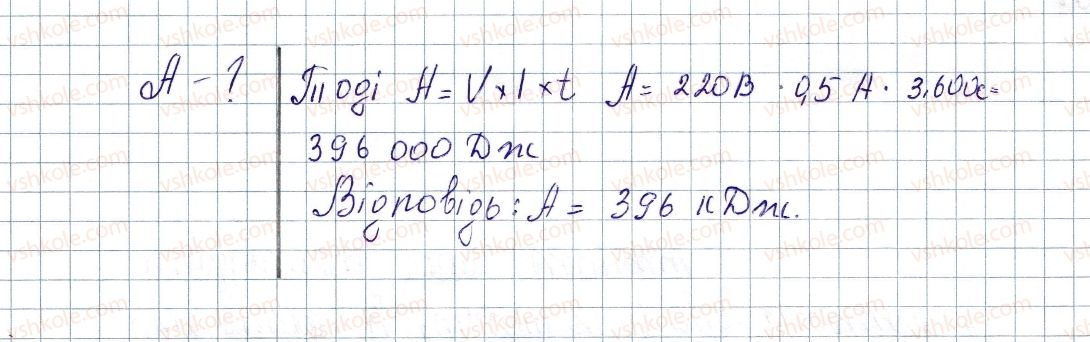 А - ? Тоді А = V × I × t А = 220В · 0,5 А · 3.600с =
396 000 Дж
Відповідь: А = 396 кДж.
vshkole.com